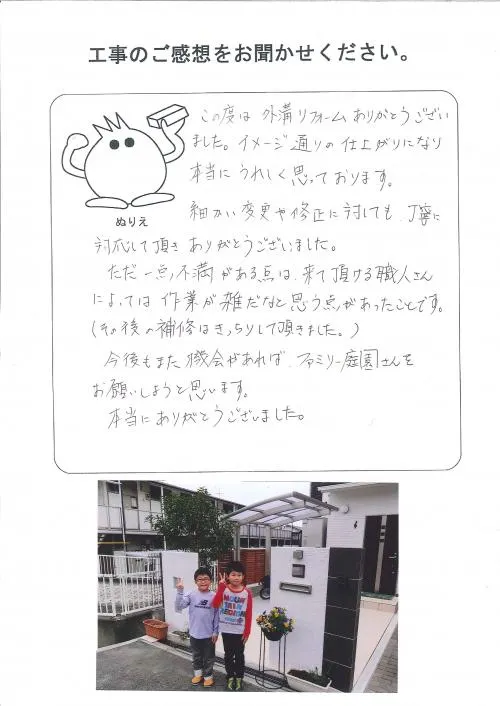 工事のご感想をお聞かせください。
この度は外溝リフォームありがとうござい
ました。イメージ通りの仕上がりになり
本当にうれしく思っております。
ぬりえ
細かい変更や修正に対しても、丁寧に
対応して頂きありがとうございました。
ただ一点、不満がある点は、来て頂ける職人さん
によっては作業が雑だなと思う点があったことです。
(その後の補修はきっちりして頂きました。)
今後もまた機会があれば、ファミリー庭園さんを
お願いしようと思います。
本当にありがとうございました。